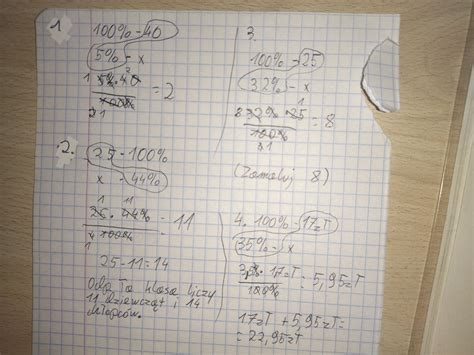 1.
100% - 40
5% - x
5% · 40
100%
= 2
2.
25 - 100%
x - 44%
25 · 44%
100%
= 11
25 - 11 = 14
Odp. Ta klasa liczy
11 dziewcząt i 14
chłopców.
3.
100% - 25
32% - x
32% · 25
100%
= 8
(Zamaluj 8)
4. 100% - 17zł
35% - x
35% · 17zł
100%
= 5,95zł
17zł + 5,95zł =
= 22,95zł